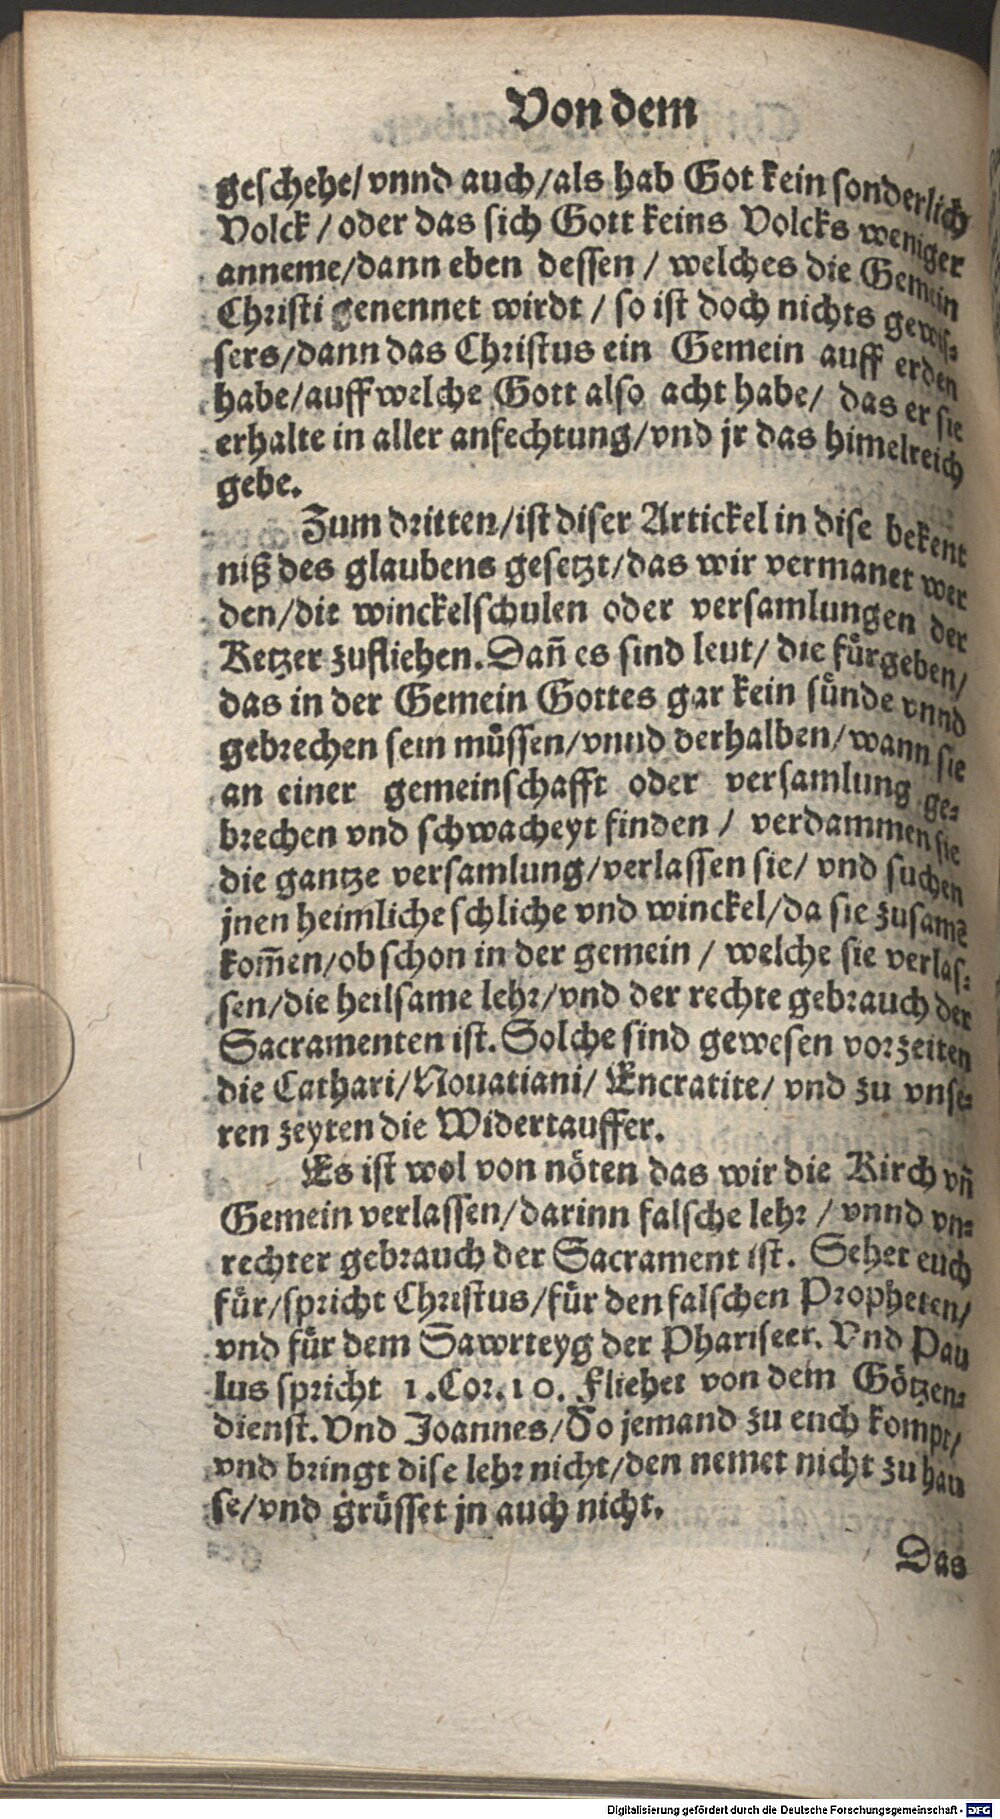 Von dem
geschehe/ vnnd auch/als hab Got kein sonderlich
Volck / oder das sich Gott keins Volcks weniger
anneme/dann eben dessen / welches die Gemein
Christi genennet wirdt / so ist doch nichts gewis-
sers/dann das Christus ein Gemein auff erden
habe/auff welche Gott also acht habe/ das er sie
erhalte in aller anfechtung/vnd jr das himelreich
gebe.
Zum dritten/ist diser Artickel in dise bekent
niß des glaubens gesetzt/das wir vermanet wer
den/die winckelschulen oder versamlungen der
Ketzer zufliehen. Dañ es sind leut/ die fürgeben/
das in der Gemein Gottes gar kein sünde vnnd
gebrechen sein müssen/vnnd derhalben/wann sie
an einer gemeinschafft oder versamlung ge-
brechen vnd schwacheyt finden / verdammen sie
die gantze versamlung/verlassen sie/ vnd suchen
jnen heimliche schliche vnd winckel/da sie zusamē
kom̃en/ob schon in der gemein / welche sie verlas-
sen/die heilsame lehr/vnd der rechte gebrauch der
Sacramenten ist. Solche sind gewesen vorzeiten
die Cathari/Nouatiani/ Encratite/ vnd zu vnse-
ren zeyten die Widertauffer.
Es ist wol von nöten das wir die Kirch vñ
Gemein verlassen/darinn falsche lehr / vnnd vn-
rechter gebrauch der Sacrament ist. Sehet euch
für/spricht Christus/für den falschen Propheten/
vnd für dem Sawrteyg der Phariseer. Vnd Pau
lus spricht 1.Cor.10. Fliehet von dem Götzen-
dienst. Vnd Joannes/So jemand zu euch kompt/
vnd bringt dise lehr nicht/den nemet nicht zu hau
se/vnd grüsset jn auch nicht.
Das
Digitalisierung gefördert durch die Deutsche Forschungsgemeinschaft - DFG